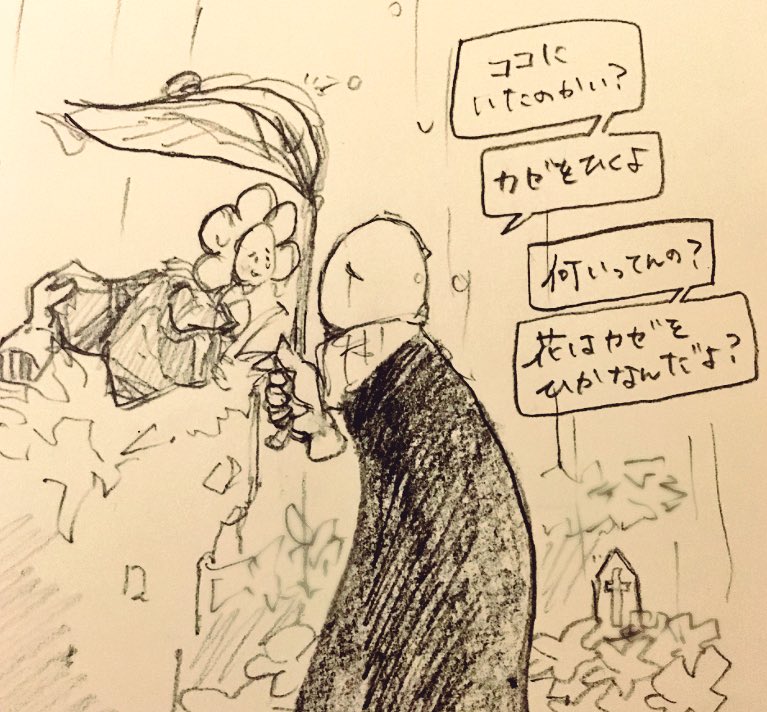 ココに
いたのかい?
カゼをひくよ
何いってんの?
花はカゼを
ひかなんだよ?